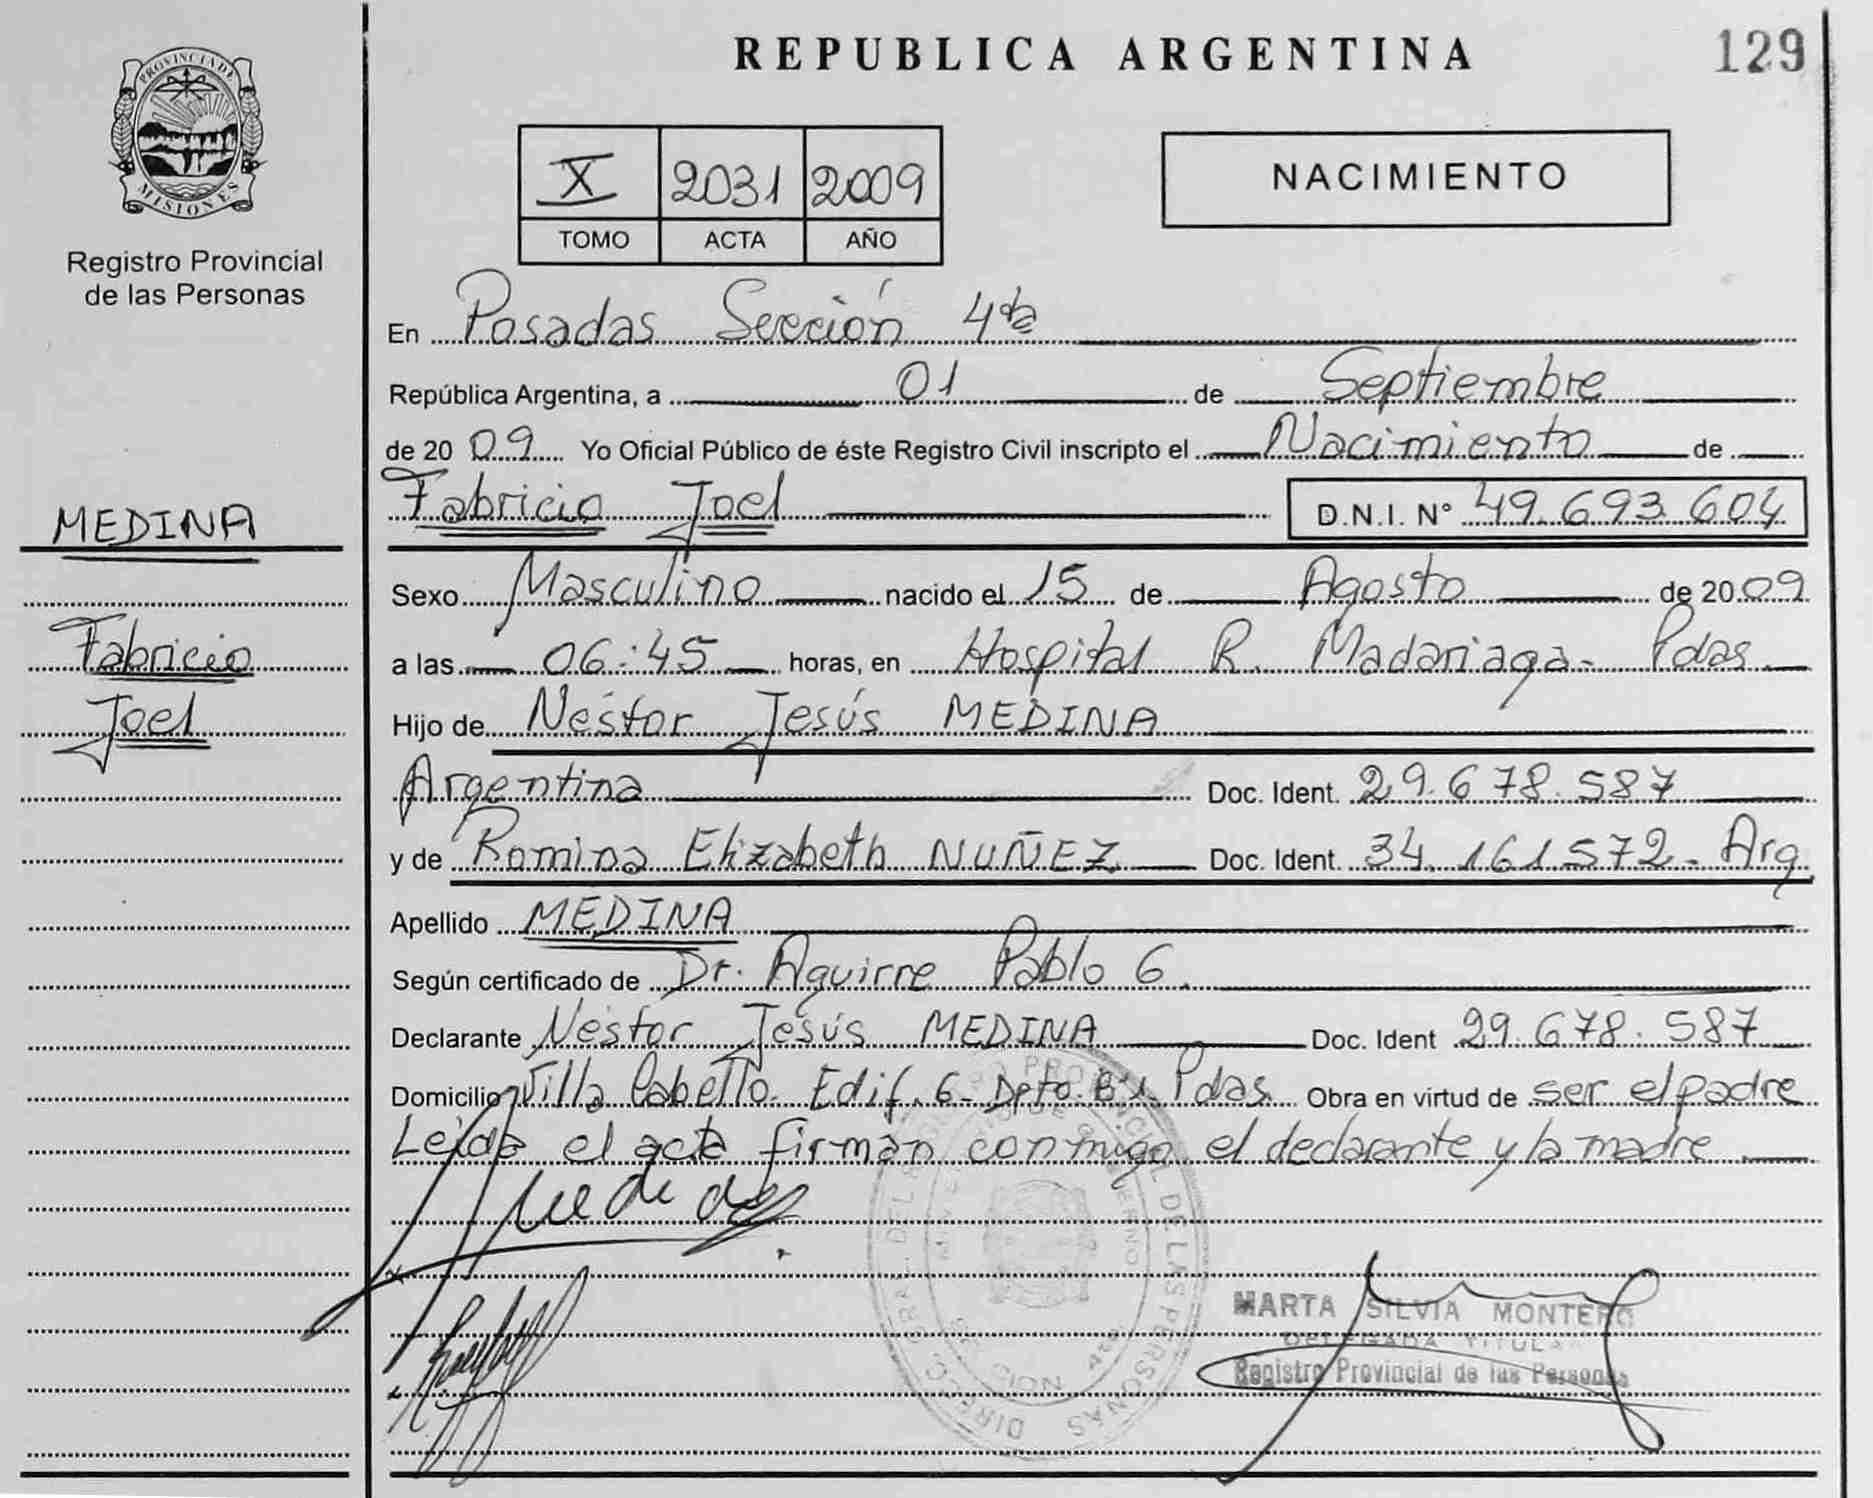 PROVINCIA DE
MISIONES
Registro Provincial
de las Personas
MEDINA
Fabricio
Joel
REPUBLICA ARGENTINA
129
X 2031 2009
TOMO ACTA AÑO
NACIMIENTO
En Posadas Sección 4ta
República Argentina, a 01 de Septiembre
de 2009 Yo Oficial Público de éste Registro Civil inscripto el Nacimiento de
Fabricio Joel D.N.I. N° 49.693.604
Sexo Masculino nacido el 15 de Agosto de 2009
a las 06:45 horas, en Hospital R. Madariaga- Pdas
Hijo de Néstor Jesús MEDINA
Argentina Doc. Ident. 29.678.587
y de Romina Elizabeth NUÑEZ Doc. Ident. 34.161.572- Arg
Apellido MEDINA
Según certificado de Dr. Aguirre Pablo G.
Declarante Néstor Jesús MEDINA Doc. Ident 29.678.587
Domicilio Villa Cabello. Edif. 6- Dpto. Pdas. Obra en virtud de ser el padre
Leída el acta firman conmigo el declarante y la madre
MARTA SILVIA MONTERO
DELEGADA TITULAR
Registro Provincial de las Personas